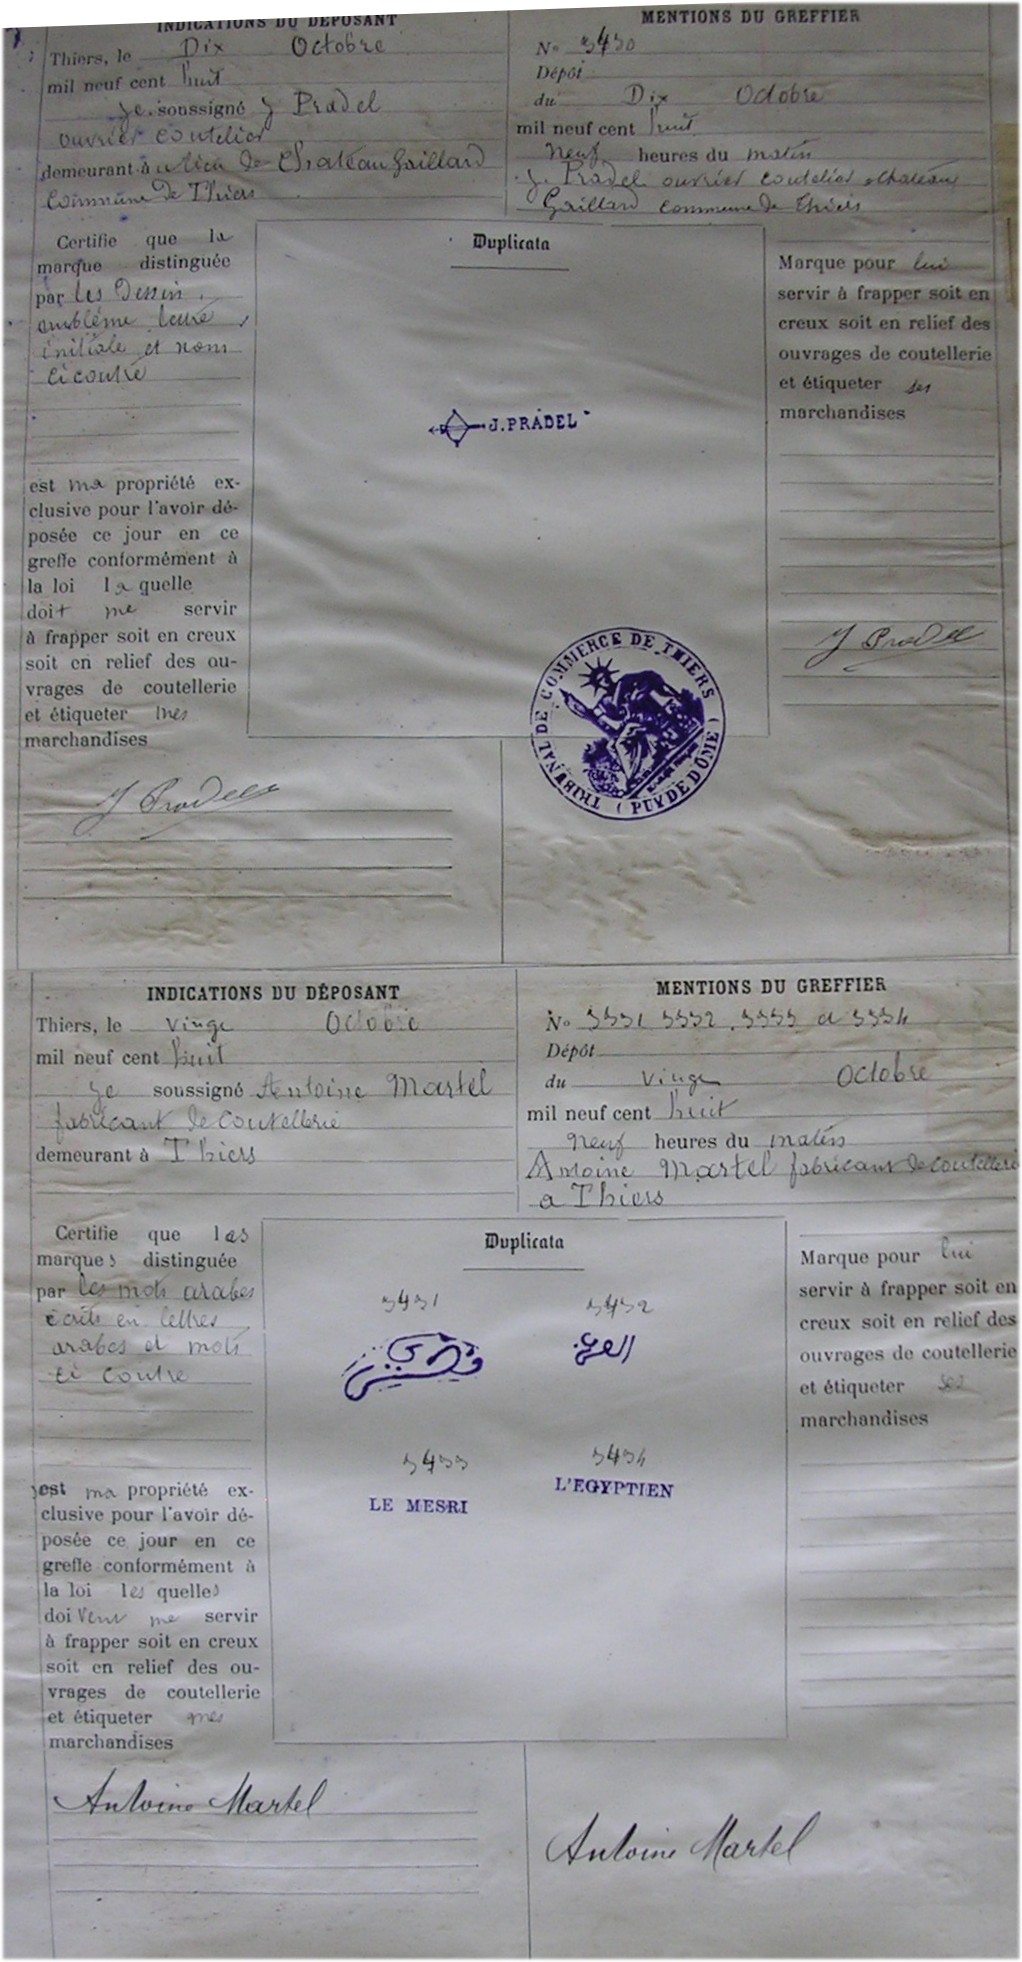 INDICATIONS DU DÉPOSANT
Thiers, le Dix Octobre
mil neuf cent huit
Je soussigné J Pradel
ouvrier coutelier
demeurant à lieu de Chateau Gaillard
Commune de Thiers
MENTIONS DU GREFFIER
No 3430
Dépôt
du Dix Octobre
mil neuf cent huit
neuf heures du matin
J. Pradel ouvrier coutelier Chateau
Gaillard commune de Thiers
Certifie que la
marque distinguée
par les Dessin,
emblême
initiale et nom
ci contre
est ma propriété ex-
clusive pour l'avoir dé-
posée ce jour en ce
greffe conformément à
la loi la quelle
doit me servir
à frapper soit en creux
soit en relief des ou-
vrages de coutellerie
et étiqueter mes
marchandises
J Pradel
Duplicata
J. PRADEL
TRIBUNAL DE COMMERCE DE THIERS
( PUY DE DÔME )
Marque pour lui
servir à frapper soit en
creux soit en relief des
ouvrages de coutellerie
et étiqueter ses
marchandises
J Pradel
INDICATIONS DU DÉPOSANT
Thiers, le vingt Octobre
mil neuf cent huit
Je soussigné Antoine Martel
fabricant de coutellerie
demeurant à Thiers
MENTIONS DU GREFFIER
No 3431 3432, 3433 a 3434
Dépôt
du vingt Octobre
mil neuf cent huit
neuf heures du matin
Antoine Martel fabricant de coutellerie
a Thiers
Certifie que les
marques distinguée
par les mots arabes
écrits en lettres
arabes et mots
ci contre
est ma propriété ex-
clusive pour l'avoir dé-
posée ce jour en ce
greffe conformément à
la loi les quelles
doivent me servir
à frapper soit en creux
soit en relief des ou-
vrages de coutellerie
et étiqueter mes
marchandises
Antoine Martel
Duplicata
3431 3432
3433 3434
LE MESRI L'EGYPTIEN
Marque pour lui
servir à frapper soit en
creux soit en relief des
ouvrages de coutellerie
et étiqueter ses
marchandises
Antoine Martel